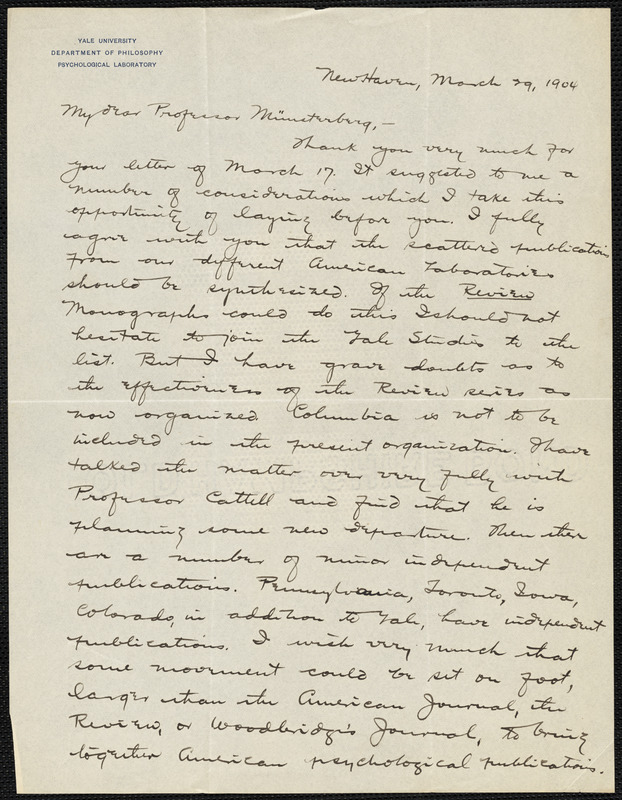 YALE UNIVERSITY
DEPARTMENT OF PHILOSOPHY
PSYCHOLOGICAL LABORATORY
New Haven, March 29, 1904
My dear Professor Münsterberg,—
Thank you very much for
your letter of March 17. It suggested to me a
number of considerations which I take this
opportunity of laying before you. I fully
agree with you that the scattered publications
from our different American laboratories
should be synthesized. If the Review
Monographs could do this I should not
hesitate to join the Yale Studies to the
list. But I have grave doubts as to
the effectiveness of the Review series as
now organized. Columbia is not to be
included in the present organization. I have
talked the matter over very fully with
Professor Cattell and find that he is
planning some new departure. Then there
are a number of minor independent
publications. Pennsylvania, Toronto, Iowa,
Colorado, in addition to Yale, have independent
publications. I wish very much that
some movement could be set on foot,
larger than the American Journal, the
Review, or Woodbridge's Journal, to bring
together American psychological publications.